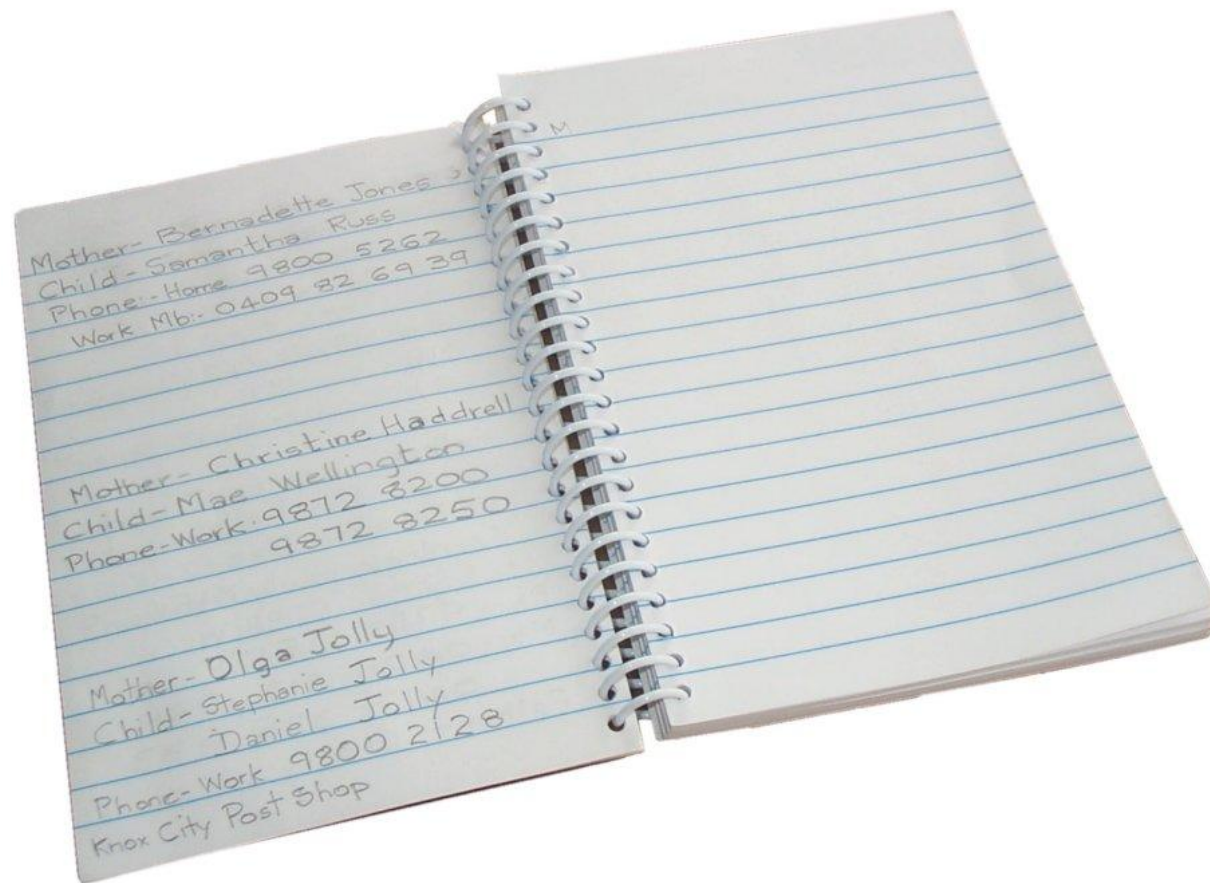 Mother- Bernadette Jones
Child- Samantha Russ
Phone:- Home 9800 5262
Work Mb:- 0409 82 69 39
Mother- Christine Haddrell
Child- Mae Wellington
Phone-Work: 9872 8200
9872 8250
Mother- Olga Jolly
Child- Stephanie Jolly
Daniel Jolly
Phone- Work 9800 2128
Knox City Post Shop
M